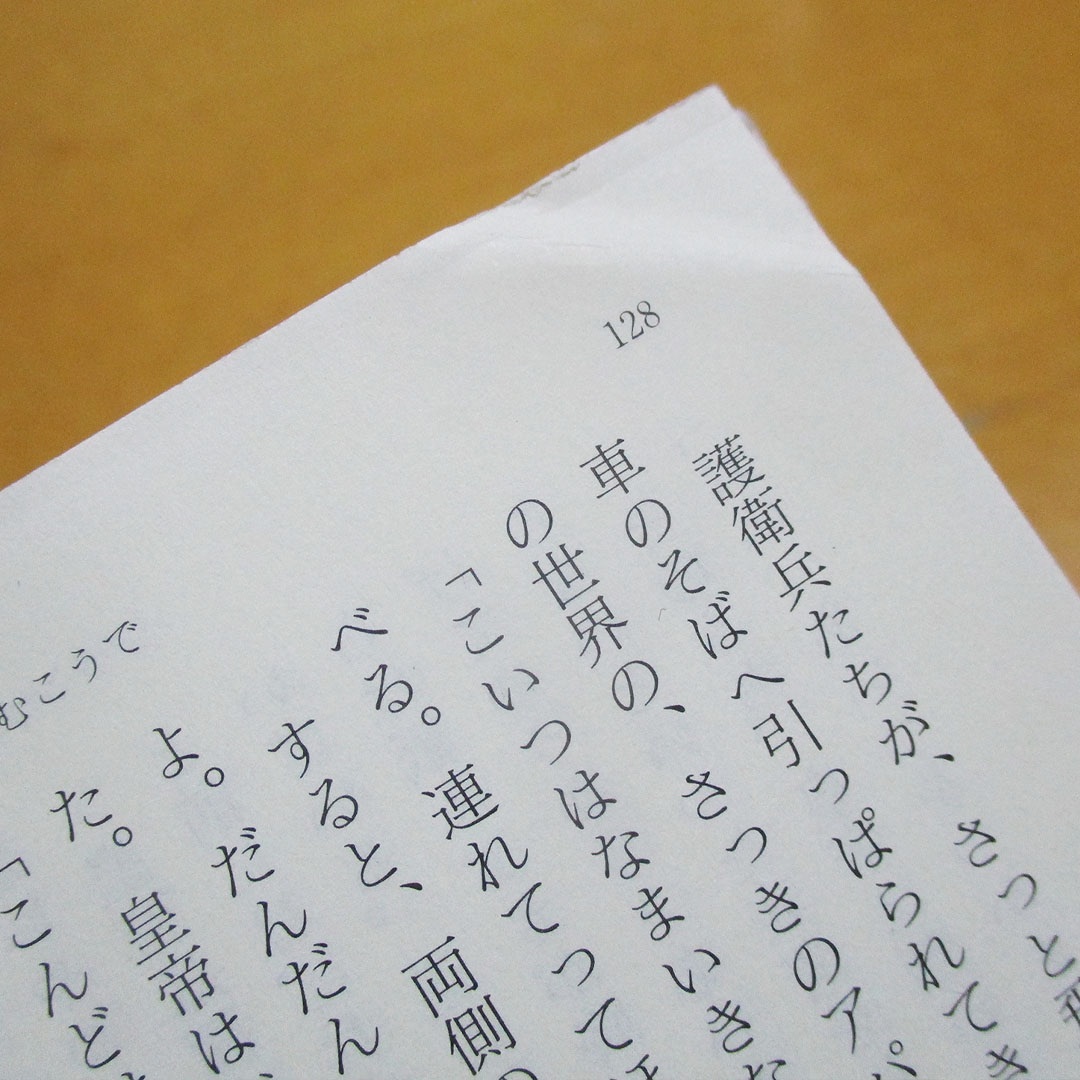 128
護衛兵たちが、さっと
車のそばへ引っぱられてき
の世界の、さっきのアパ
「こいつはなまいきだ
べる。連れてって
すると、両側の
よ。だんだん
た。皇帝は、
「こんど
むこうで